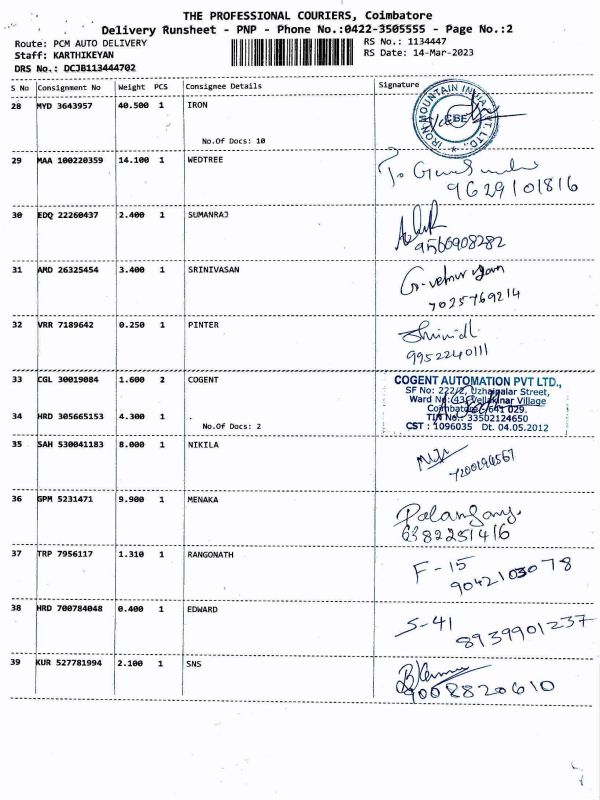 THE PROFESSIONAL COURIERS, Coimbatore
Delivery Runsheet - PNP - Phone No.:0422-3505555 - Page No.:2
Route: PCM AUTO DELIVERY
RS No.: 1134447
Staff: KARTHIKEYAN
RS Date: 14-Mar-2023
DRS No.: DCJB113444702
S No Consignment No Weight PCS Consignee Details Signature
28 MYD 3643957 40.500 1 IRON
IRON MOUNTAIN INDIA PVT. LTD.
No.Of Docs: 10
29 MAA 100220359 14.100 1 WEDTREE
9629101816
30 EDQ 22260437 2.400 1 SUMANRAJ
9566908282
31 AMD 26325454 3.400 1 SRINIVASAN
7025769214
32 VRR 7189642 0.250 1 PINTER
9952240111
33 CGL 30019084 1.600 2 COGENT
COGENT AUTOMATION PVT LTD.,
SF No: 222/2, Uzhaipalar Street,
Ward No: 43, Vellakinar Village
Coimbatore 641 029.
TIN No.: 33502124650
CST : 1096035 Dt. 04.05.2012
34 HRD 305665153 4.300 1 .
No.Of Docs: 2
35 SAH 530041183 8.000 1 NIKILA
36 GPM 5231471 9.900 1 MENAKA
6382251416
37 TRP 7956117 1.310 1 RANGONATH
F-15
9042103078
38 HRD 700784048 0.400 1 EDWARD
S-41
8939901237
39 KUR 527781994 2.100 1 SNS
9008820610